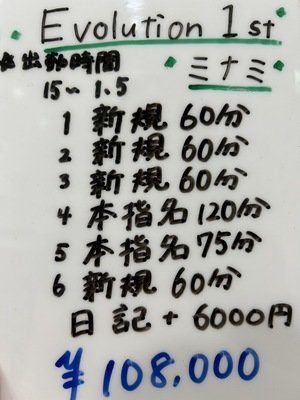 Evolution 1st
ミナミ
出勤時間
15~1.5
1 新規 60分
2 新規 60分
3 新規 60分
4 本指名 120分
5 本指名 75分
6 新規 60分
日記 + 6000円
¥108,000